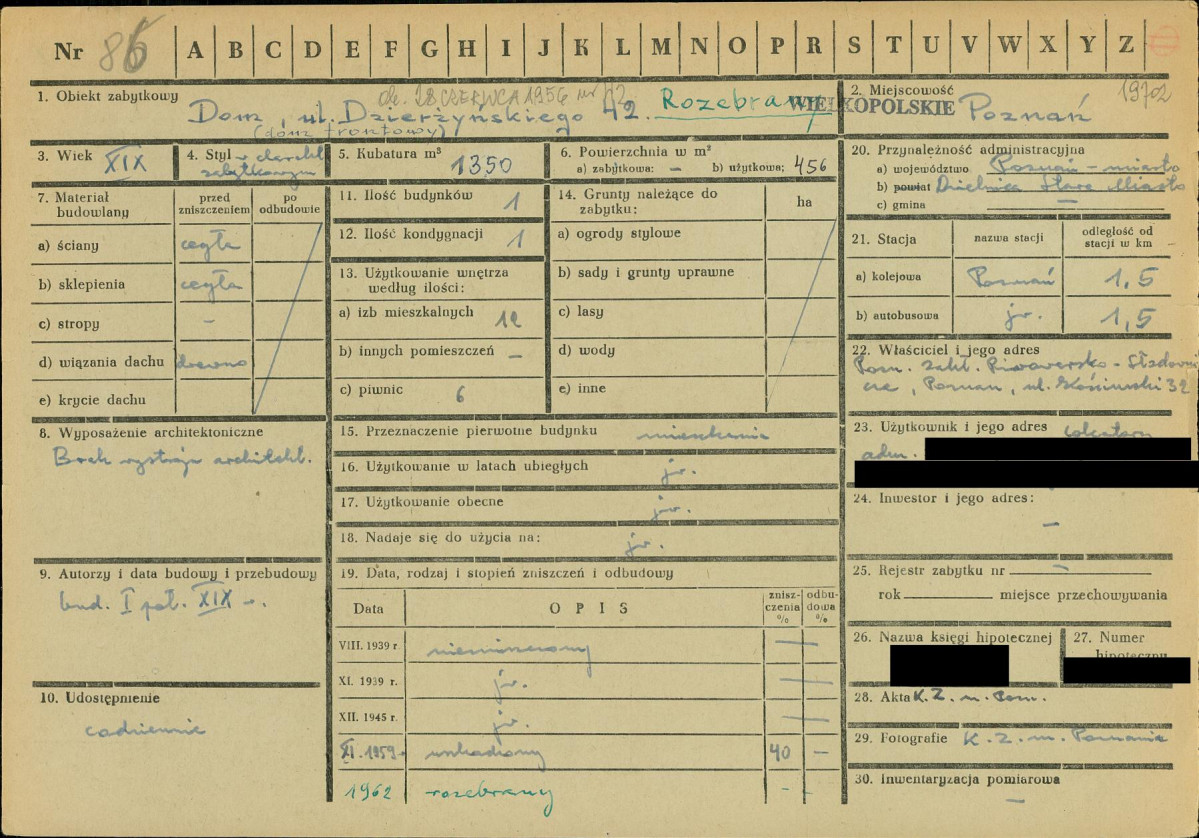 Nr 86 A B C D E F G H I J K L M N O P R S T U V W X Y Z
1. Obiekt zabytkowy
ob. 28 CZERWCA 1956 nr
Dom, ul. Dzierzyńskiego 42. Rozebrany
(dom frontowy)
WIELKOPOLSKIE
2. Miejscowość
Poznań
3. Wiek XIX
4. Styl
5. Kubatura m³ 1350
6. Powierzchnia w m²
a) zabytkowa: – b) użytkowa: 456
7. Materiał budowlany
przed zniszczeniem
po odbudowie
a) ściany cegła
b) sklepienia cegła
c) stropy –
d) wiązania dachu drewno
e) krycie dachu
8. Wyposażenie architektoniczne
Brak wystroju architekt.
9. Autorzy i data budowy i przebudowy
bud. I poł. XIX w.
10. Udostępnienie
codziennie
11. Ilość budynków 1
12. Ilość kondygnacji 1
13. Użytkowanie wnętrza
według ilości:
a) izb mieszkalnych 12
b) innych pomieszczeń –
c) piwnic 6
14. Grunty należące do
zabytku: ha
a) ogrody stylowe
b) sady i grunty uprawne
c) lasy
d) wody
e) inne
15. Przeznaczenie pierwotne budynku mieszkanie
16. Użytkowanie w latach ubiegłych jw.
17. Użytkowanie obecne jw.
18. Nadaje się do użycia na: jw.
19. Data, rodzaj i stopień zniszczeń i odbudowy
Data OPIS zniszczenia % odbudowa %
VIII. 1939 r. niezniszczony –
XI. 1939 r. jw. –
XII. 1945 r. jw. –
XI. 1959 uszkodzony 40 –
1962 rozebrany - -
20. Przynależność administracyjna
a) województwo Poznań – miasto
b) powiat Dzielnica Stare Miasto
c) gmina –
21. Stacja
nazwa stacji
odległość od
stacji w km
a) kolejowa Poznań 1,5
b) autobusowa jw. 1,5
22. Właściciel i jego adres
Pozn. Zakł. Piwowarsko-Słodowni
cze, Poznań, ul. Kościuszki 32
23. Użytkownik i jego adres lokatorzy
adm.
24. Inwestor i jego adres:
–
25. Rejestr zabytku nr –
rok miejsce przechowywania
26. Nazwa księgi hipotecznej
27. Numer
hipoteczny
28. Akta K. Z. m. Pozn.
29. Fotografie K. Z. m. Poznania
30. Inwentaryzacja pomiarowa
–